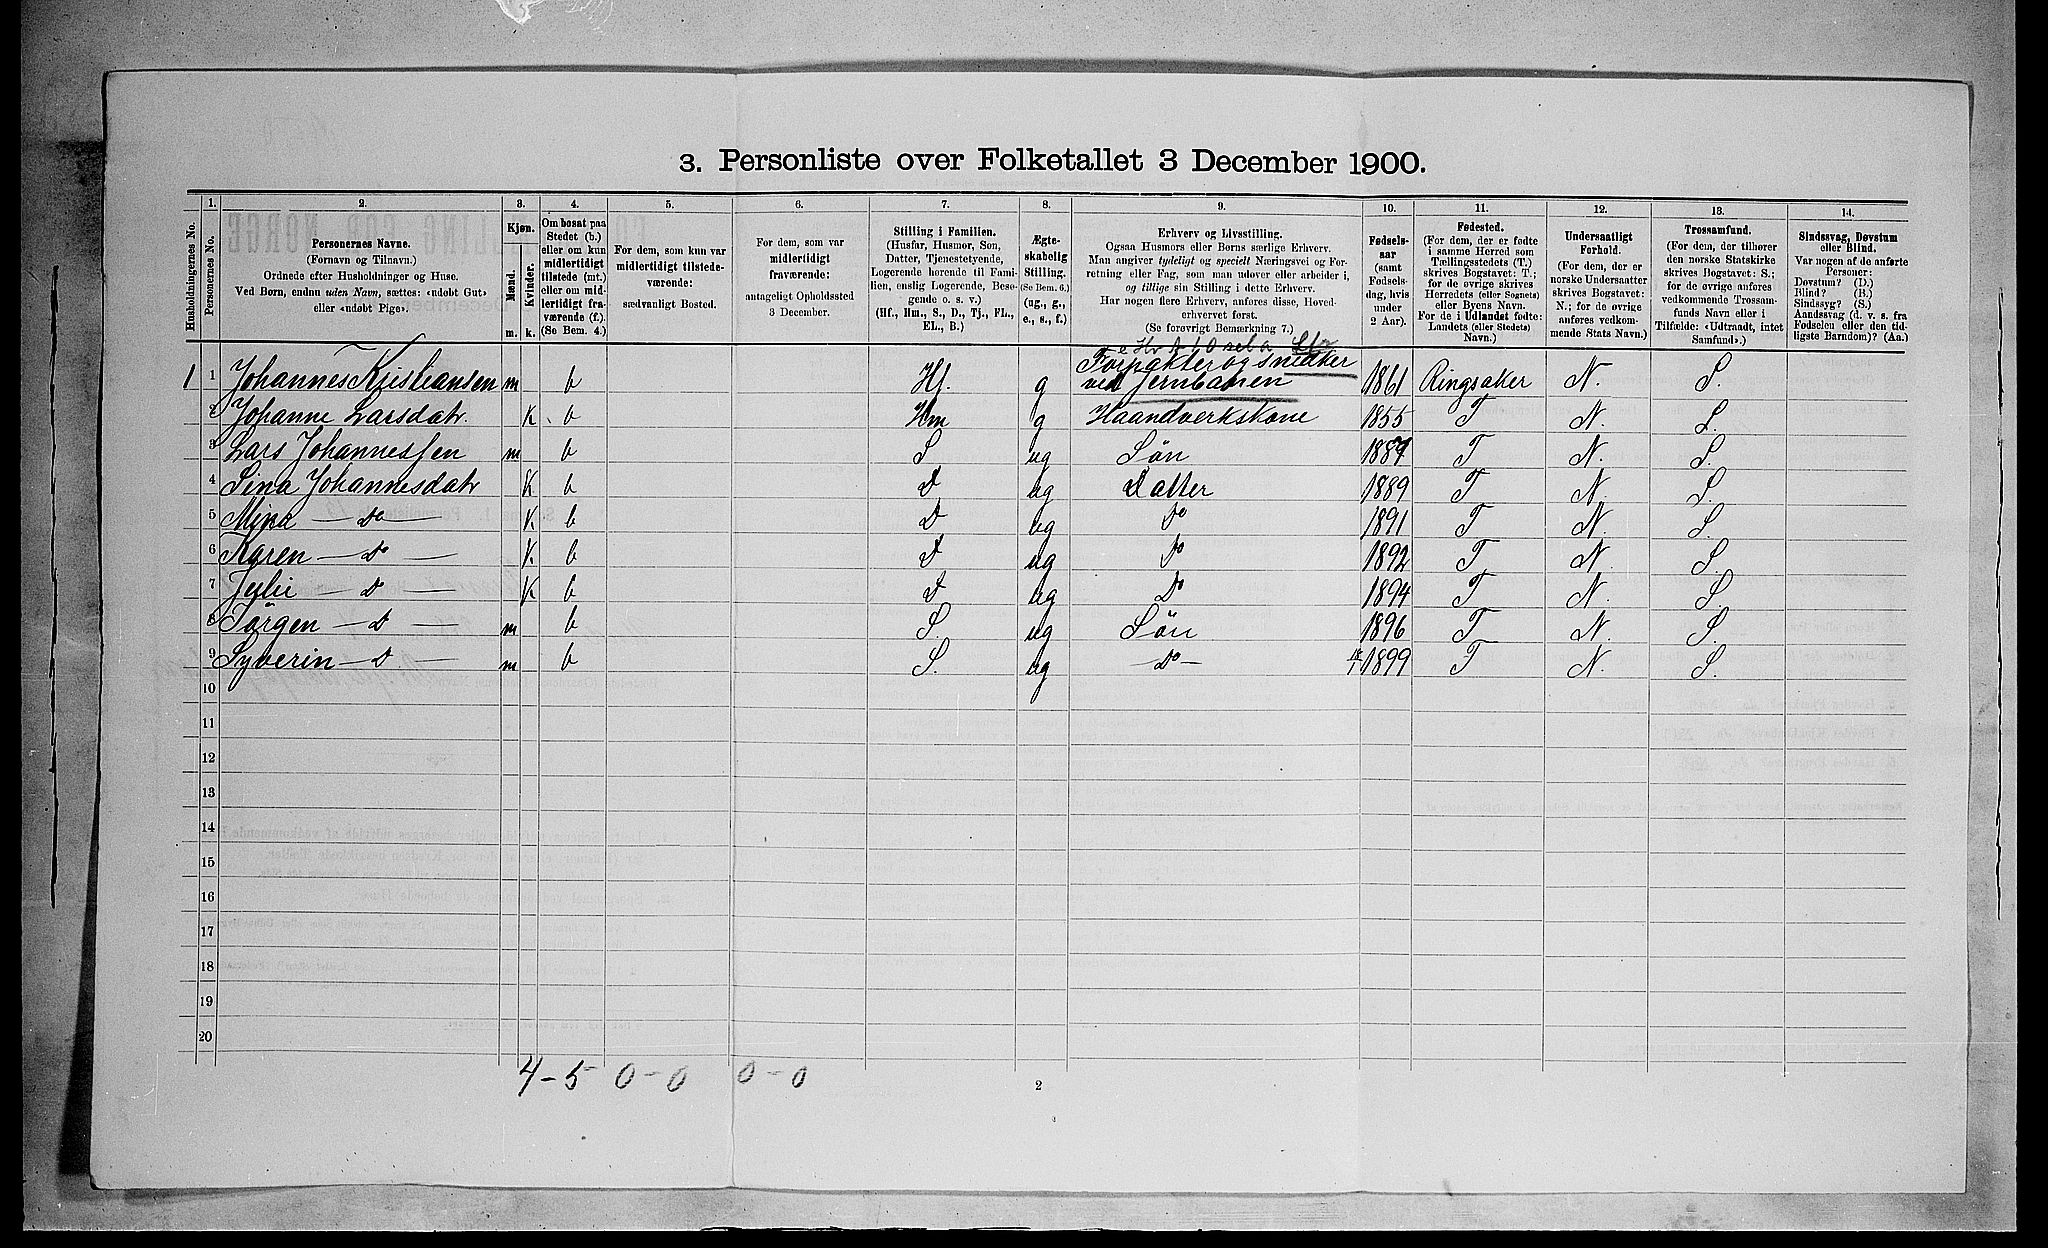 3. Personliste over Folketallet 3 December 1900.
1. 2. 3. 4. 5. 6. 7. 8. 9. 10. 11. 12. 13. 14.
Husholdningernes No.
Personernes No.
Personernes Navne.
(Fornavn og Tilnavn.)
Ordnede efter Husholdninger og Huse.
Ved Børn, endnu uden Navn, sættes: «udøbt Gut»
eller «udøbt Pige».
Kjøn.
Mænd.
Kvinder.
m. k.
Om bosat paa
Stedet (b.)
eller om kun
midlertidigt
tilstede (mt.)
eller om mid-
lertidigt fra-
værende (f.).
(Se Bem. 4.)
For dem, som kun var
midlertidigt tilstede-
værende:
sædvanligt Bosted.
For dem, som var
midlertidigt
fraværende:
antageligt Opholdssted
3 December.
Stilling i Familien.
(Husfar, Husmor, Søn,
Datter, Tjenestetyende,
Logerende hørende til Fami-
lien, enslig Logerende, Besø-
gende o. s. v.)
(Hf., Hm., S., D., Tj., FL.,
EL., B.)
Ægte-
skabelig
Stilling.
(Se Bem. 6.)
(ug., g.,
e., s., f.)
Erhverv og Livsstilling.
Ogsaa Husmors eller Børns særlige Erhverv.
Man angiver tydeligt og specielt Næringsvei og For-
retning eller Fag, som man udøver eller arbeider i,
og tillige sin Stilling i dette Erhverv.
Har nogen flere Erhverv, anføres disse, Hoved-
erhvervet først.
(Se forøvrigt Bemærkning 7.)
Fødsels-
aar
(samt
Fødsels-
dag, hvis
under
2 Aar).
Fødested.
(For dem, der er fødte
i samme Herred som
Tællingsstedets (T.)
skrives Bogstavet: T.;
for de øvrige skrives
Herredets (eller Sognets)
eller Byens Navn.
For de i Udlandet fødte:
Landets (eller Stedets)
Navn.)
Undersaatligt
Forhold.
(For dem, der er
norske Undersaatter
skrives Bogstavet:
N.; for de øvrige
anføres vedkom-
mende Stats Navn.)
Trossamfund.
(For dem, der tilhører
den norske Statskirke
skrives Bogstavet: S.;
for de øvrige anføres
vedkommende Trossam-
funds Navn eller i
Tilfælde: «Udtraadt, intet
Samfund».)
Sindssvag, Døvstum
eller Blind.
Var nogen af de anførte
Personer:
Døvstum? (D.)
Blind? (B.)
Sindssyg? (S.)
Aandssvag (d. v. s. fra
Fødselen eller den tid-
ligste Barndom)? (Aa.)
1 1 Johannes Kristiansen m b Hf. g Forpakter og snedker ved Jernbanen 1861 Ringsaker N. S.
2 Johanne Larsdatr. K. b Hm g Haandverkskone 1855 T N. S.
3 Lars Johannessen m b S ug Søn 1887 T N. S.
4 Sina Johannesdatr K. b D ug Datter 1889 T N. S.
5 Mina — Do — K. b D ug Do 1891 T N. S.
6 Karen — Do — K. b D ug Do 1892 T N. S.
7 Julie — D — K b D ug Do 1894 T N. S.
8 Jørgen — D — m b S. ug Søn 1896 T N. S.
9 Syverin — D — m b S. ug — Do — 1899 T N. S.
10
11
12
13
14
15
16
17
18
19
20
4 - 5 0 - 0 0 - 0
2